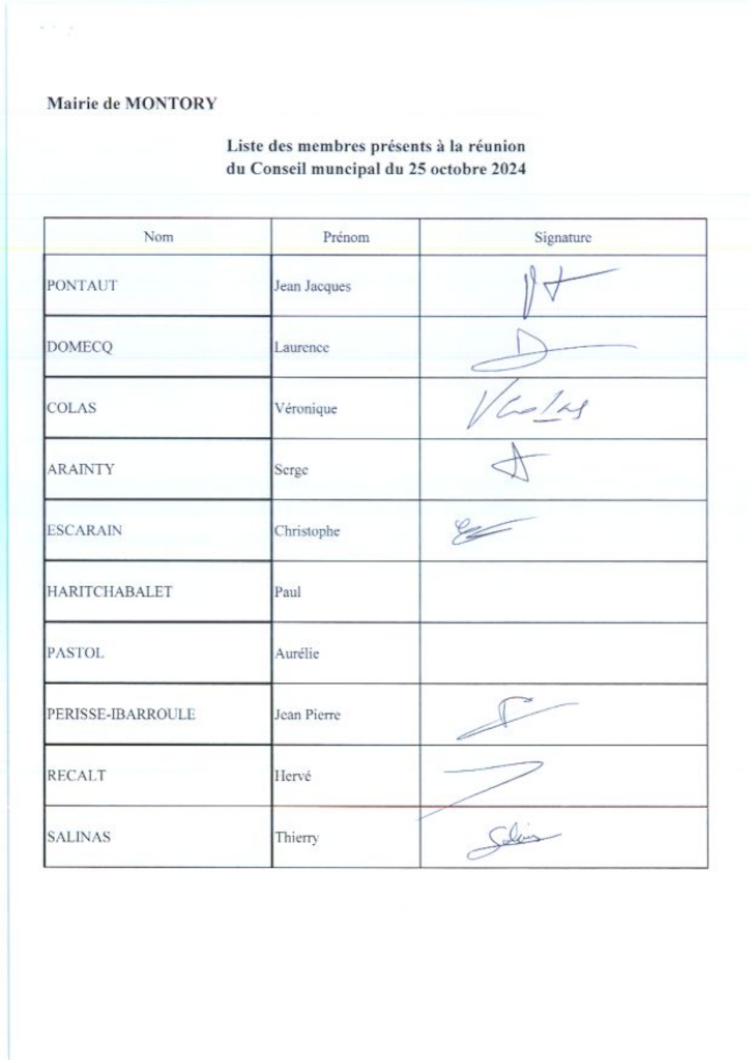 Mairie de MONTORY
Liste des membres présents à la réunion
du Conseil muncipal du 25 octobre 2024
Nom Prénom Signature
PONTAUT Jean Jacques
DOMECQ Laurence
COLAS Véronique VColas
ARAINTY Serge
ESCARAIN Christophe
HARITCHABALET Paul
PASTOL Aurélie
PERISSE-IBARROULE Jean Pierre
RECALT Hervé
SALINAS Thierry Salinas